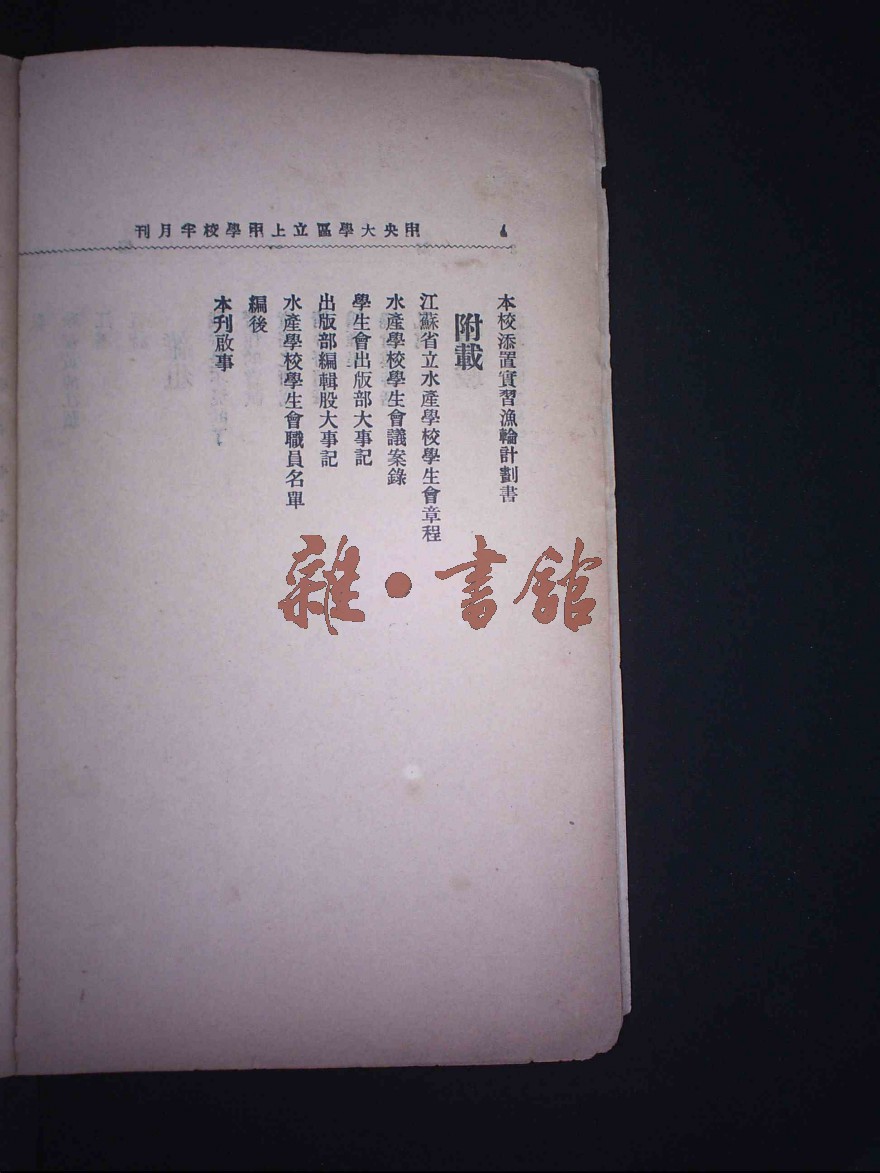 中央大學區立上中學校半月刊
本校添置實習漁輪計劃書
附載
江蘇省立水產學校學生會章程
水產學校學生會議案錄
學生會出版部大事記
出版部編輯股大事記
水產學校學生會職員名單
編後
本刊啟事
雜·書館